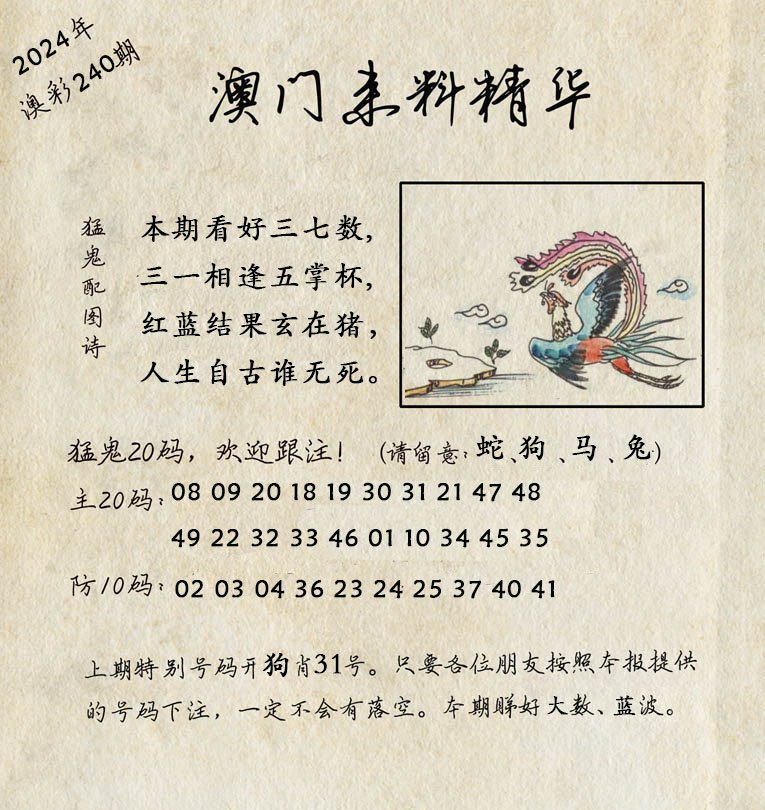 2024年
澳彩240期
澳门来料精华
猛鬼配图诗
本期看好三七数,
三一相逢五掌杯,
红蓝结果玄在猪,
人生自古谁无死。
猛鬼20码，欢迎跟注！ (请留意：蛇、狗、马、兔)
主20码：08 09 20 18 19 30 31 21 47 48
49 22 32 33 46 01 10 34 45 35
防10码：02 03 04 36 23 24 25 37 40 41
上期特别号码开狗肖31号。只要各位朋友按照本报提供
的号码下注，一定不会有落空。本期睇好大数、蓝波。